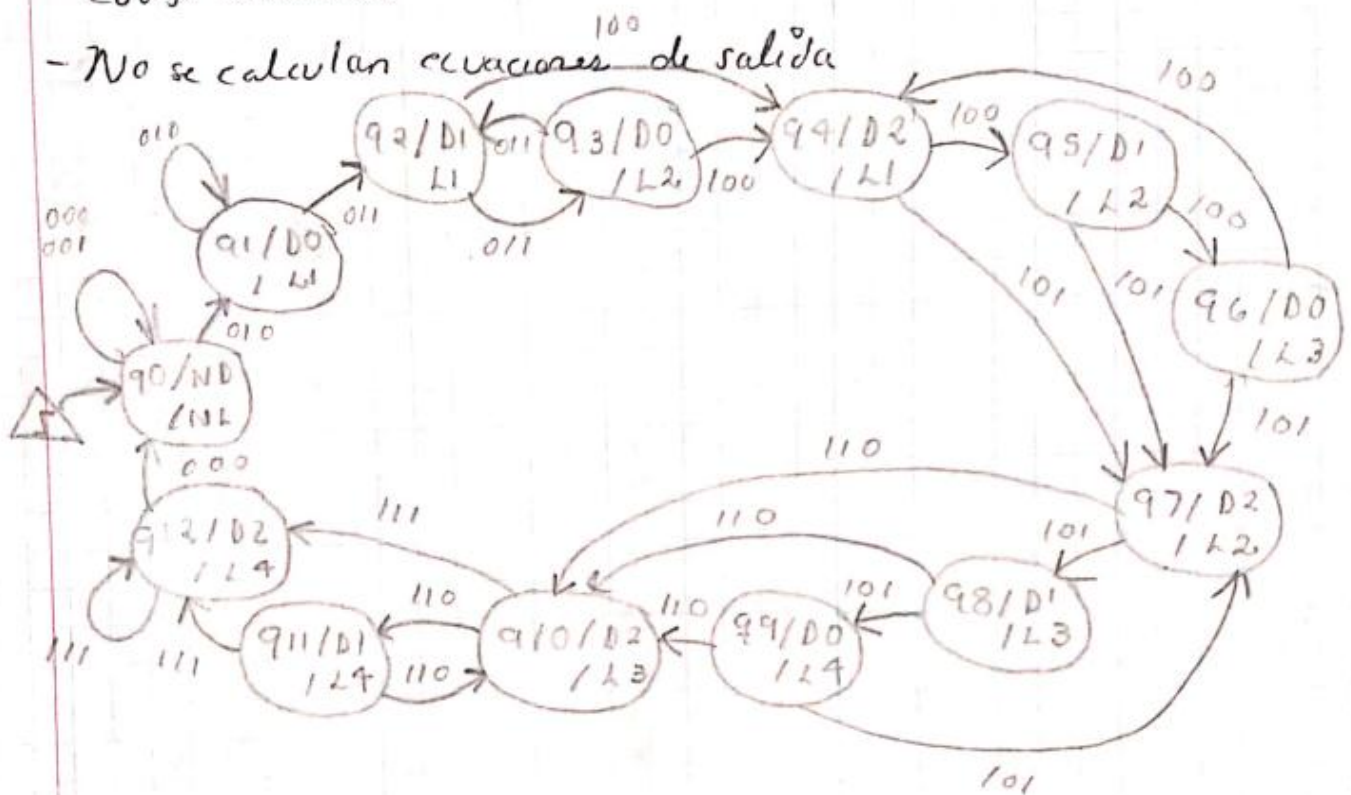 - No se calculan ecuaciones de salida
100
100
010
q2/D1
L1
011
q3/D0
/L2
100
q4/D2
/L1
100
q5/D1
/L2
100
000
001
q1/D0
/L1
011
011
101
101
q6/D0
/L3
010
q0/ND
/NL
101
110
000
q12/D2
/L4
111
110
q7/D2
/L2
101
110
110
101
q8/D1
/L3
q11/D1
/L4
q10/D2
/L3
q9/D0
/L4
111
111
110
101